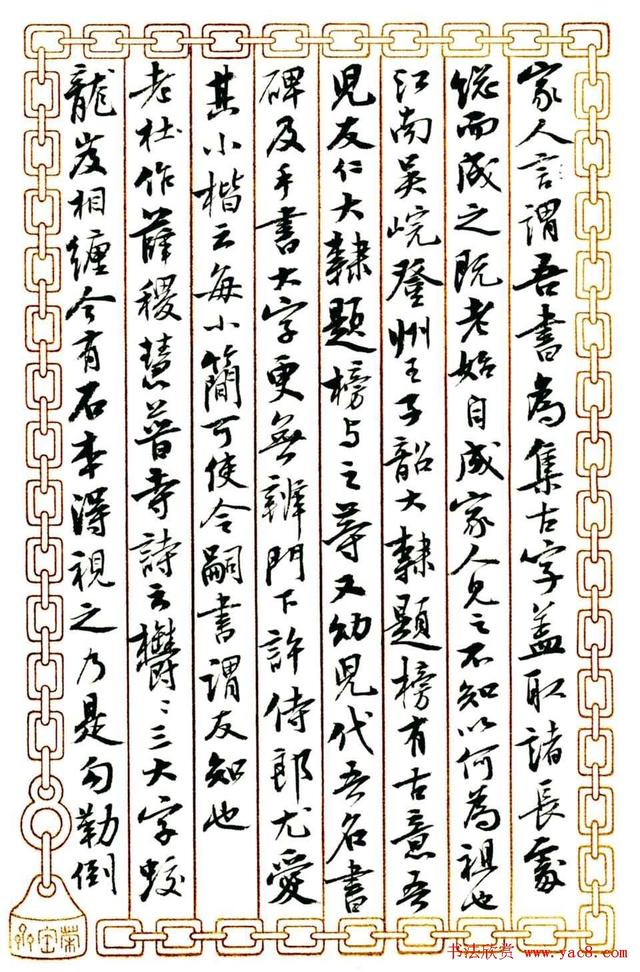 家人言謂吾書為集古字盖取諸長處
総而成之既老始自成家人見之不知以何為祖也
江南吳岏登州王子韶大隸題榜有古意吾
兒友仁大隸題榜与之等又幼兒代吾名書
碑及手書大字更無辨門下許侍郎尤愛
其小楷云每小簡可使令嗣書謂友知也
老杜作薛稷慧普寺詩云鬱〻三大字蛟
龍岌相纏今有石本得視之乃是勾勒倒
榮宝斋
书法欣赏 www.yac8.com